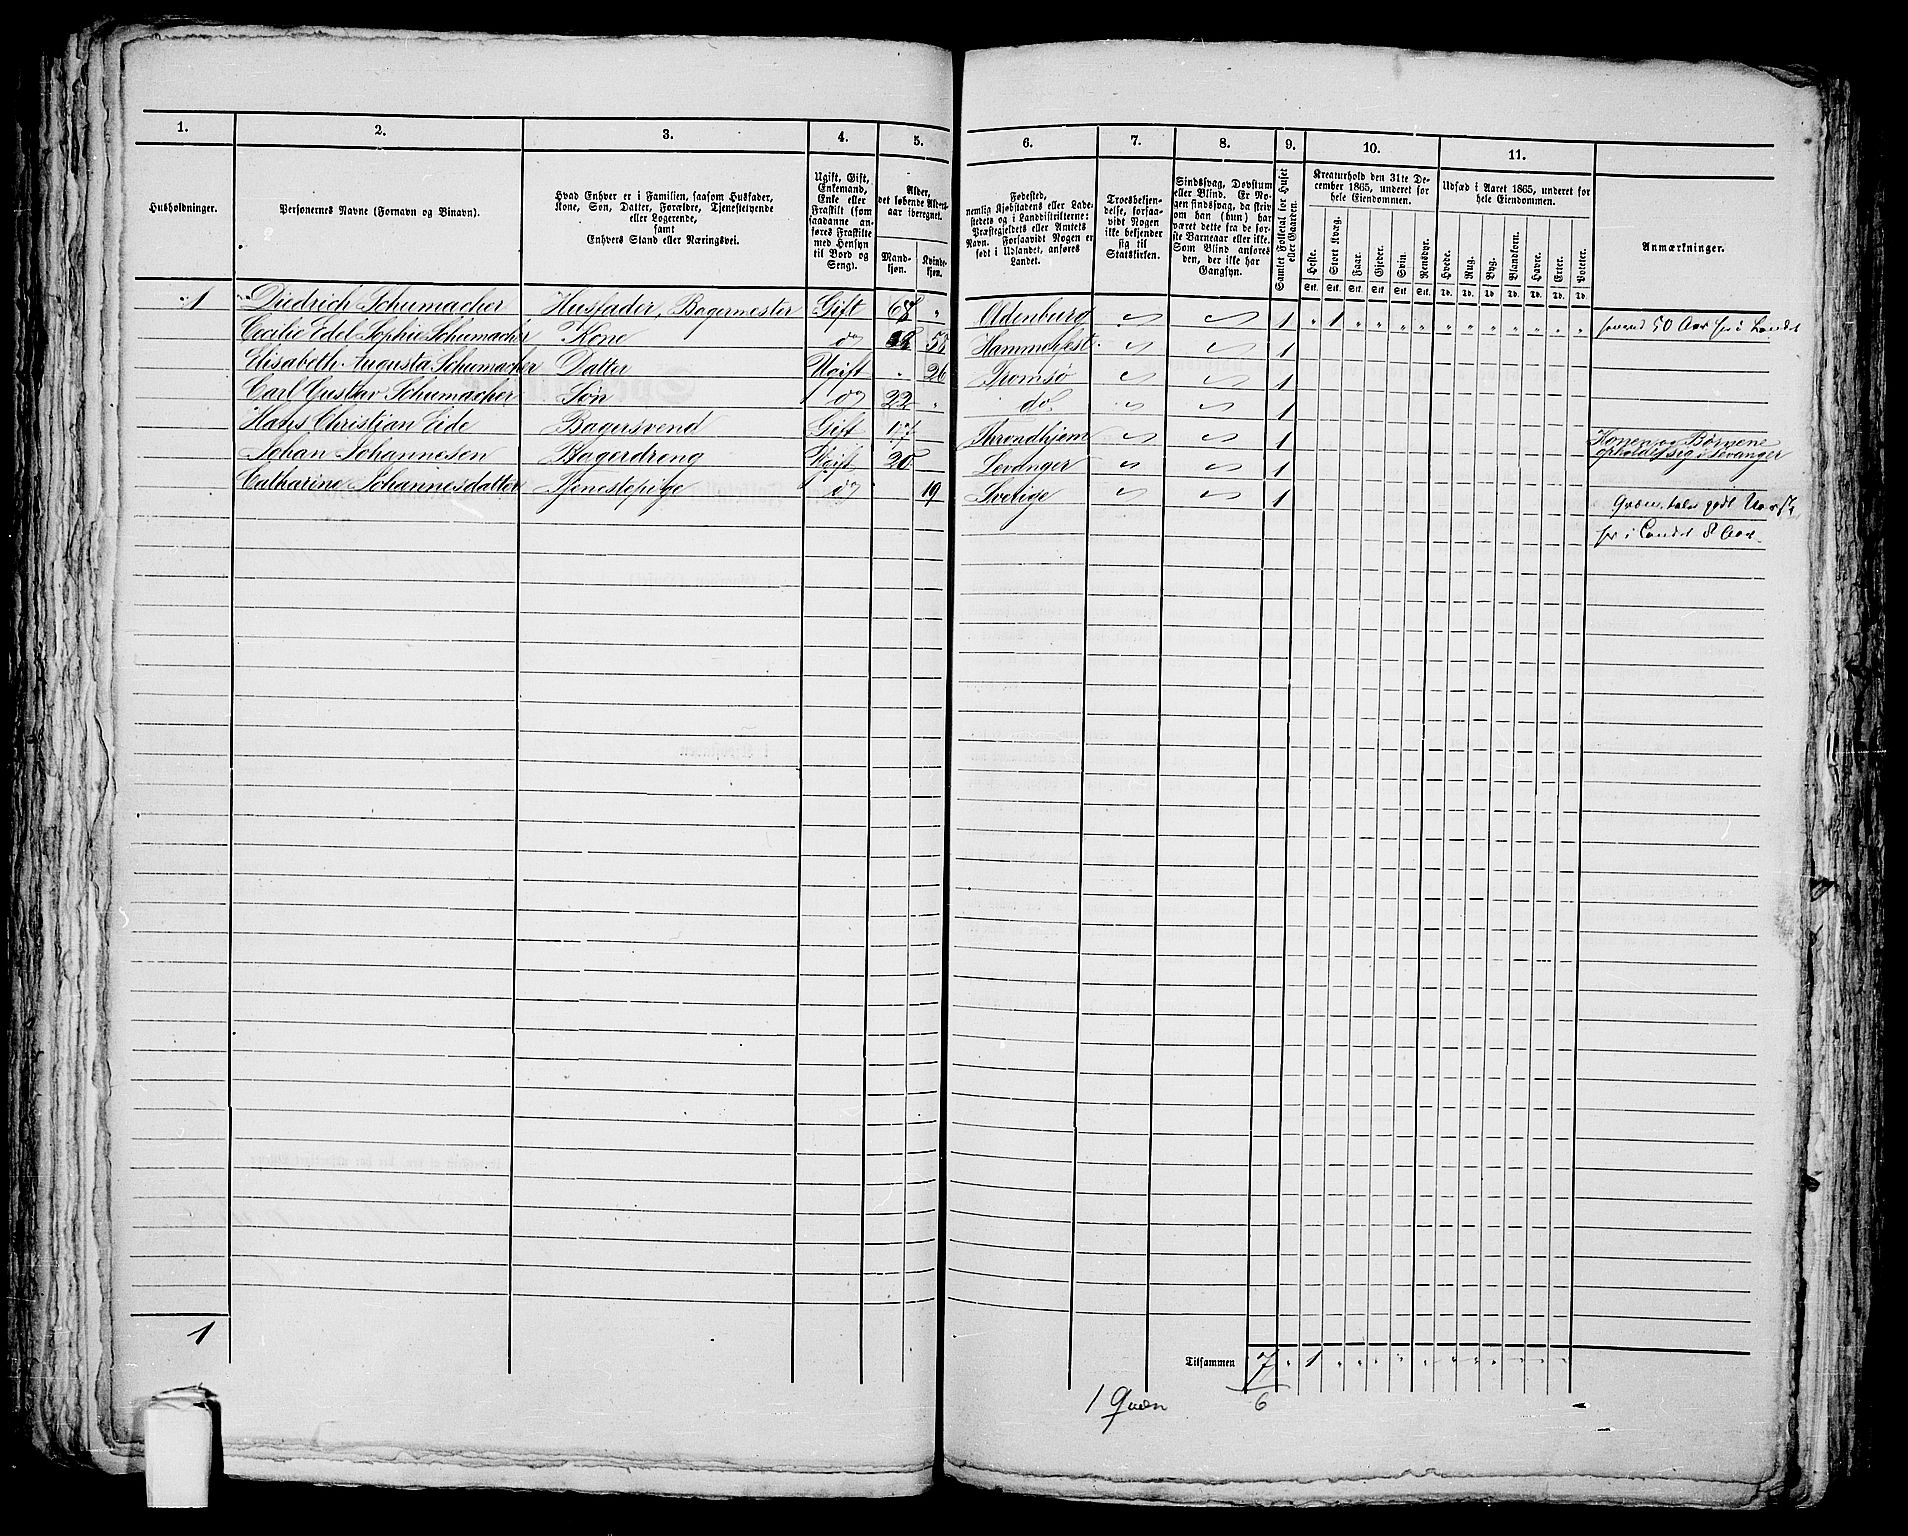 1. 2. 3. 4. 5. 6. 7. 8. 9. 10. 11.
Husholdninger.
Personernes Navne (Fornavn og Binavn).
Hvad Enhver er i Familien, saasom Husfader,
Kone, Søn, Datter, Forældre, Tjenestetyende
eller Logerende,
samt
Enhvers Stand eller Næringsvei.
Ugift, Gift,
Enkemand,
Enke eller
Fraskilt (som
saadanne an-
føres Fraskilte
med Hensyn
til Bord og
Seng).
Alder,
det løbende Alders-
aar iberegnet.
Mand-
kjøn.
Kvinde-
kjøn.
Fødested,
nemlig Kjøbstadens eller Lade-
stedets og i Landdistrikterne:
Præstegjeldets eller Amtets
Navn. Forsaavidt Nogen er
født i Udlandet, anføres
Landet.
Troesbekjen-
delse, forsaa-
vidt Nogen
ikke bekjender
sig til
Statskirken.
Sindssvag, Døvstum
eller Blind. Er No-
gen sindssvag, da skriv
om han (hun) har
været dette fra de før-
ste Barneaar eller ikke.
Som Blind anføres
den, der ikke har
Gangsyn.
Samlet Folketal for Huset
eller Gaarden.
Kreaturhold den 31te De-
cember 1865, underet for
hele Eiendommen.
Heste. Stort Kvæg. Faar. Gjeder. Svin. Rensdyr.
Stk. Stk. Stk. Stk. Stk. Stk.
Udsæd i Aaret 1865, underet for
hele Eiendommen.
Hvede. Rug. Byg. Blandkorn. Havre. Erter. Poteter.
Td. Td. Td. Td. Td. Td. Td.
Anmærkninger.
1 Diedrich Schumacher Husfader, Bagermester Gift 68 " Oldenburg 1 " 1 " " " " " " " " " " " 50 Aar her i Landet
Cecilie Edel Sophie Schumacher Kone do 57 Hammerfest 1
Elisabeth Augusta Schumacher Datter Ugift " 26 Tromsø 1
Carl Gustav Schumacher Søn do 22 " do 1
Hans Christian Eide Bagersvend Gift Throndhjem 1 Konen og Børnene
opholder sig i Levanger
Johan Johannesen Bagerdreng Ugift 20 Levanger 1
Catharine Johannesdatter Tjenestepige do 19 Sverige 1 Qvæn, taler godt Norsk
her i Landet 8 Aar
1
Tilsammen 7 " 1 " " " " " " " " " "
1 Qvæn 6